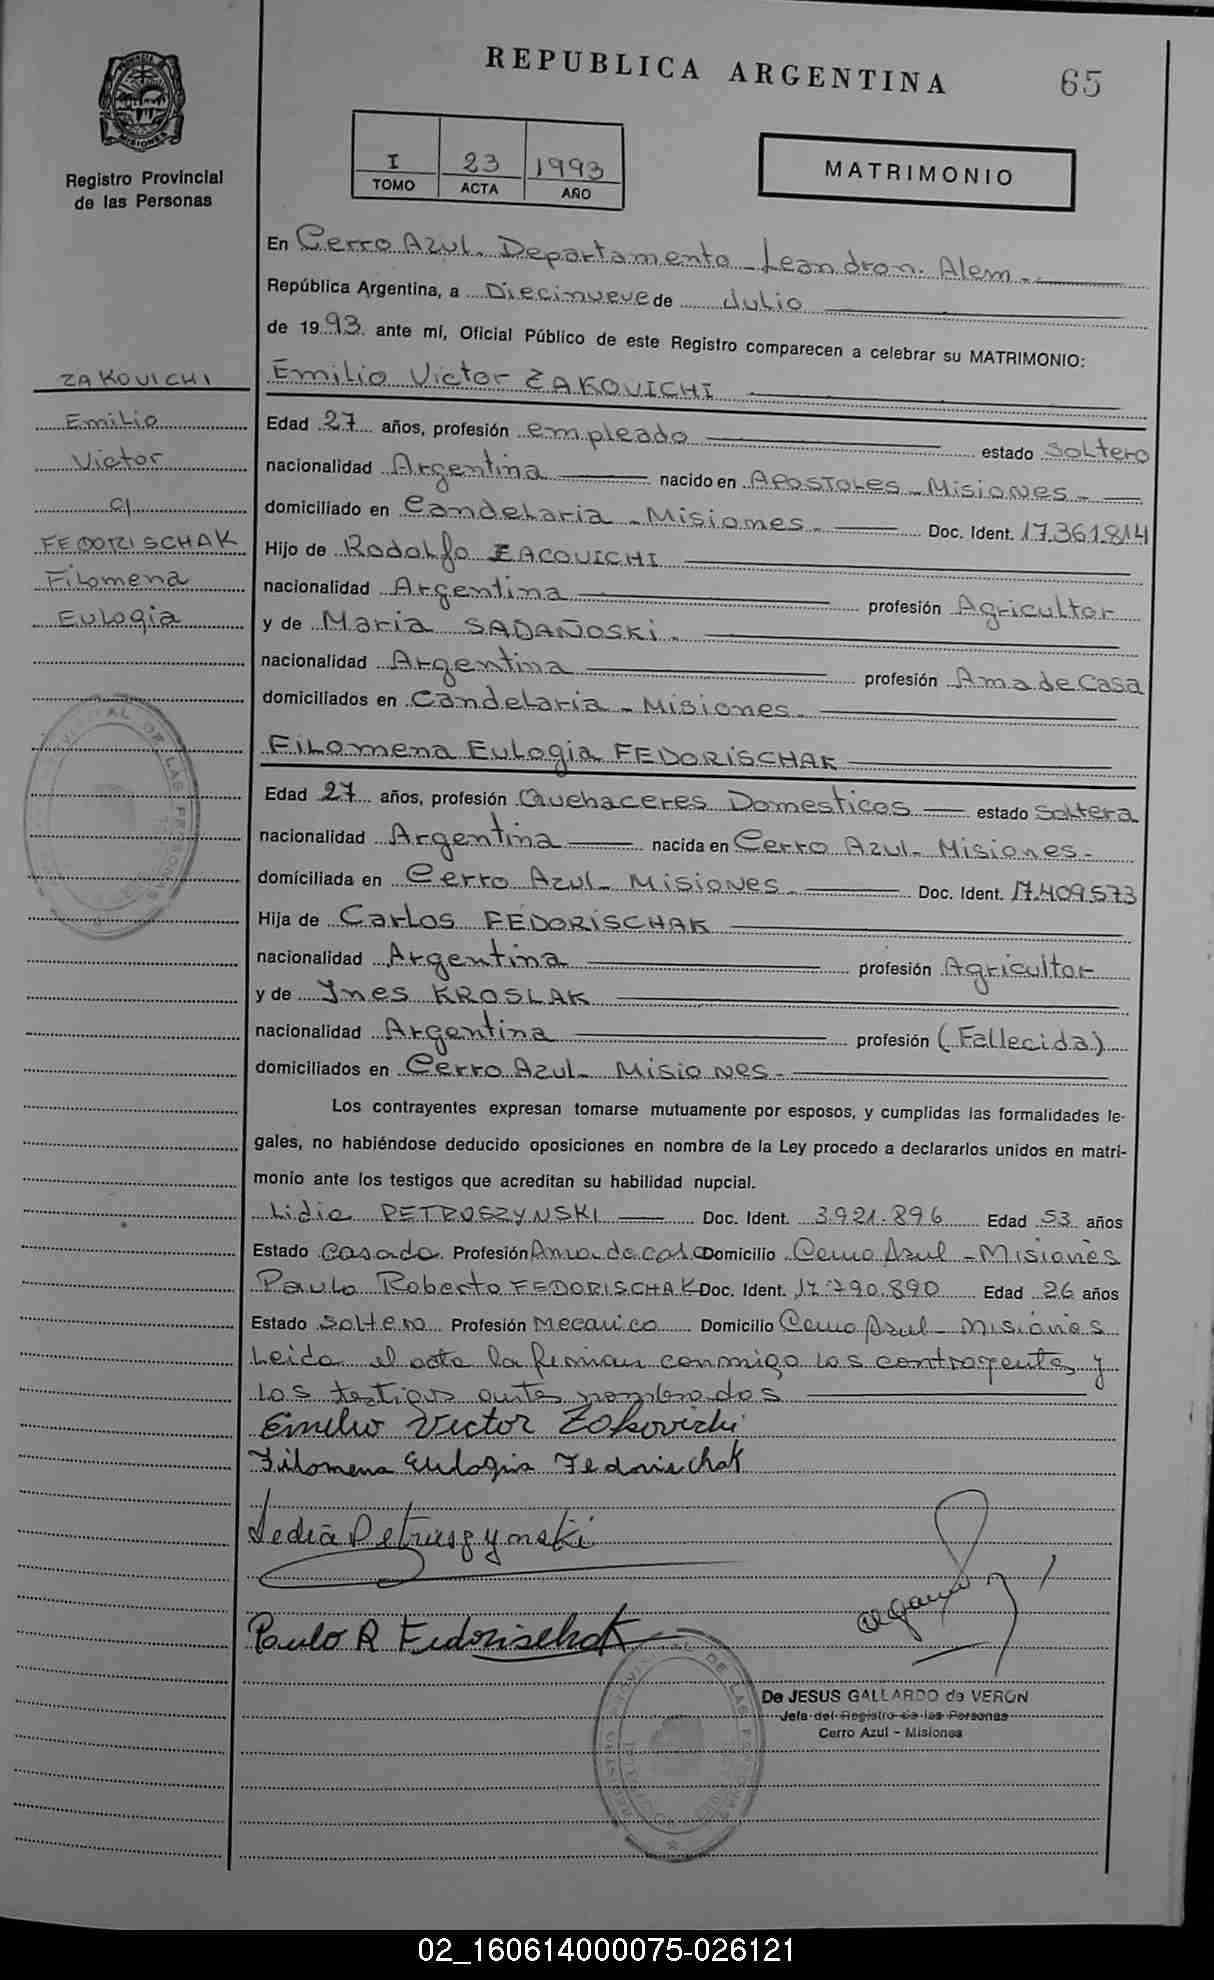 REPUBLICA ARGENTINA
65
MISIONES
Registro Provincial
de las Personas
I 23 1993
TOMO ACTA AÑO
MATRIMONIO
En Cerro Azul. Departamento Leandro N. Alem
República Argentina, a Diecinueve de Julio
de 1993 ante mí, Oficial Público de este Registro comparecen a celebrar su MATRIMONIO:
Emilio Victor ZAKOVICHI
Edad 27 años, profesión empleado estado Soltero
nacionalidad Argentina nacido en APOSTOLES - MISIONES -
domiciliado en Candelaria - Misiones - Doc. Ident. 17.361.814
Hijo de Rodolfo ZACOVICHI
nacionalidad Argentina profesión Agricultor
y de Maria SADAÑOSKI -
nacionalidad Argentina profesión Ama de Casa
domiciliados en Candelaria - Misiones -
Filomena Eulogia FEDORISCHAK
Edad 27 años, profesión Quehaceres Domesticos estado Soltera
nacionalidad Argentina nacida en Cerro Azul - Misiones -
domiciliada en Cerro Azul - Misiones - Doc. Ident. 17.409.573
Hija de Carlos FEDORISCHAK
nacionalidad Argentina profesión Agricultor
y de Ynes KROSLAK
nacionalidad Argentina profesión (Fallecida)
domiciliados en Cerro Azul - Misiones -
Los contrayentes expresan tomarse mutuamente por esposos, y cumplidas las formalidades le-
gales, no habiéndose deducido oposiciones en nombre de la Ley procedo a declararlos unidos en matri-
monio ante los testigos que acreditan su habilidad nupcial.
Lidia PETROSZYNSKI Doc. Ident. 3.921.896 Edad 53 años
Estado Casada Profesión Ama de casa Domicilio Cerro Azul - Misiones
Paulo Roberto FEDORISCHAK Doc. Ident. 17.790.890 Edad 26 años
Estado Soltero Profesión Mecanico Domicilio Cerro Azul - Misiones
Leida el acta la firman conmigo los contrayentes y
los testigos antes nombrados
Emilio Victor Zakovichi
Filomena Eulogia Fedorischak
Ledia Petruszynski
Paulo R Fedorischak
De JESUS GALLARDO de VERON
Jefa del Registro de las Personas
Cerro Azul - Misiones
ZAKOVICHI
Emilio
Victor
c/
FEDORISCHAK
Filomena
Eulogia
02_160614000075-026121